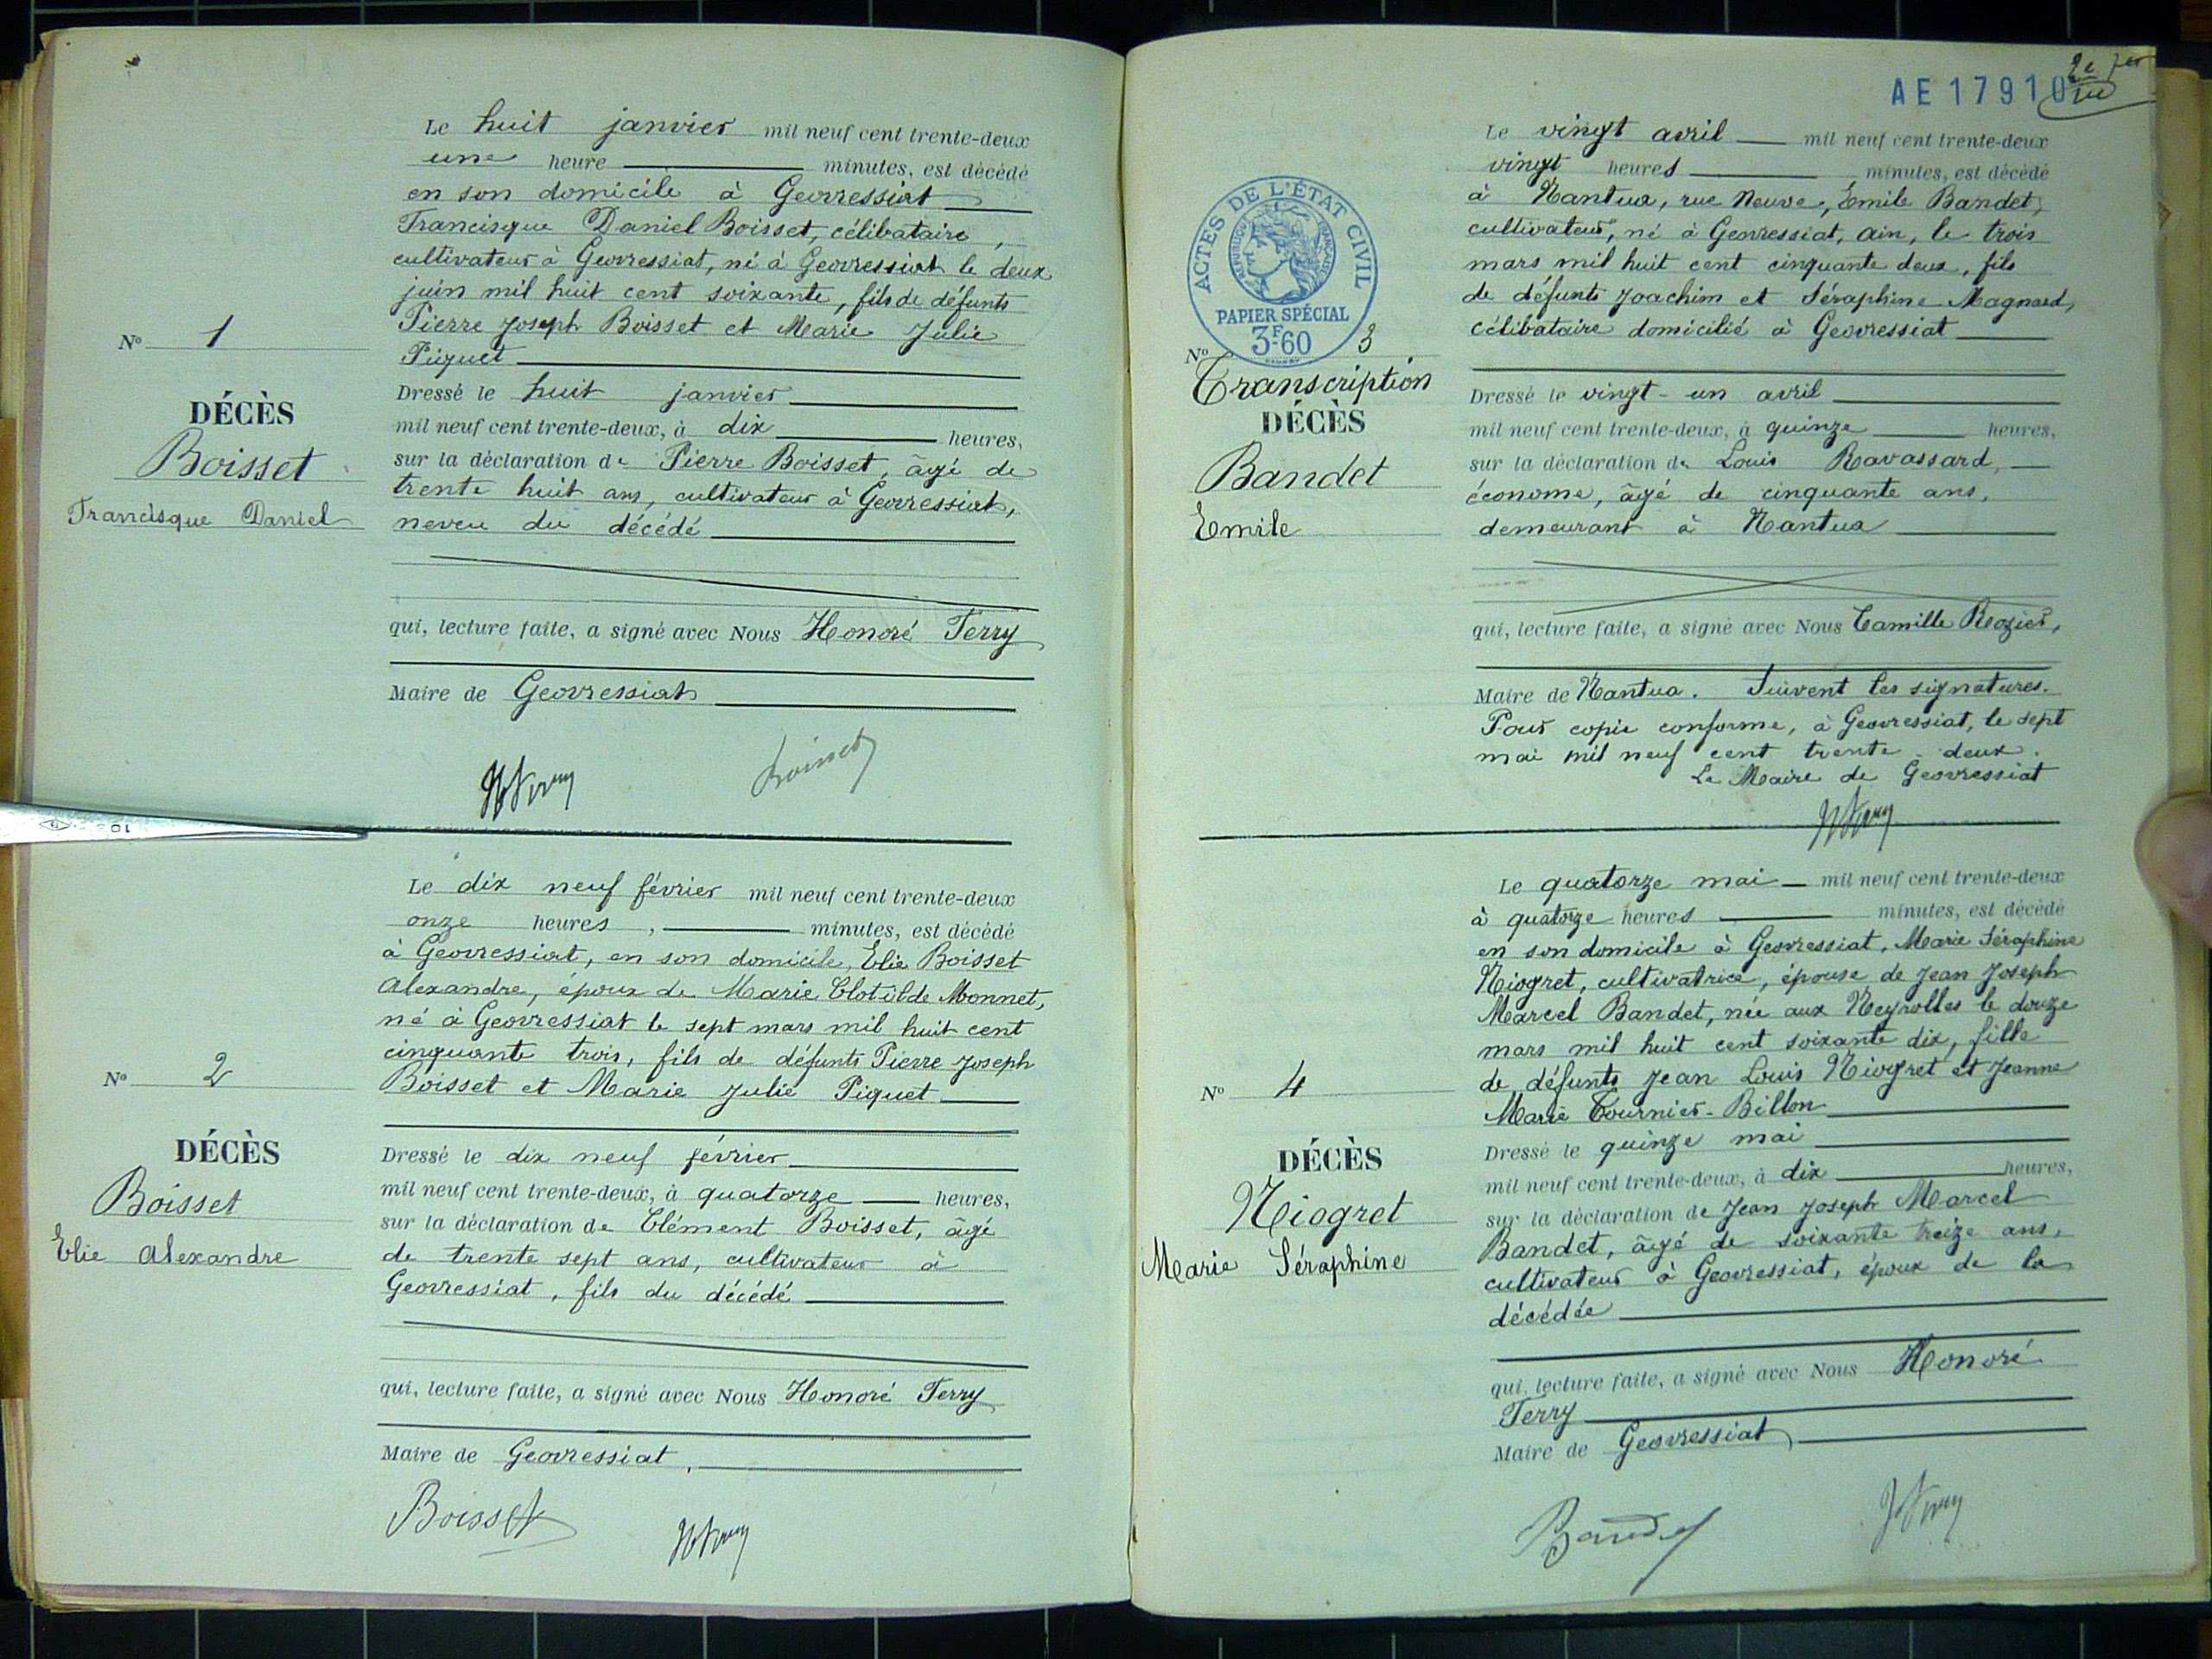 Le huit janvier mil neuf cent trente-deux
une heure minutes, est décédé
en son domicile à Geovressiat
Francisque Daniel Boisset, célibataire,
cultivateur à Geovressiat, né à Geovressiat le deux
juin mil huit cent soixante, fils de défunts
Pierre Joseph Boisset et Marie Julie
Piquet
N° 1
DÉCÈS
Boisset
Francisque Daniel
Dressé le huit janvier
mil neuf cent trente-deux, à dix heures,
sur la déclaration de Pierre Boisset, âgé de
trente huit ans, cultivateur à Geovressiat,
neveu du décédé
qui, lecture faite, a signé avec Nous Honoré Ferry
Maire de Geovressiat
Boisset
Le dix neuf février mil neuf cent trente-deux
onze heures, minutes, est décédé
à Geovressiat, en son domicile, Elie Boisset
Alexandre, époux de Marie Clotilde Monnet,
né à Geovressiat le sept mars mil huit cent
cinquante trois, fils de défunts Pierre Joseph
Boisset et Marie Julie Piquet
N° 2
DÉCÈS
Boisset
Elie Alexandre
Dressé le dix neuf février
mil neuf cent trente-deux, à quatorze heures,
sur la déclaration de Clément Boisset, âgé
de trente sept ans, cultivateur à
Geovressiat, fils du décédé
qui, lecture faite, a signé avec Nous Honoré Ferry
Maire de Geovressiat,
Boisset
AE 17910
ACTES DE L'ÉTAT CIVIL
RÉPUBLIQUE FRANÇAISE
PAPIER SPÉCIAL
3F60
Le vingt avril mil neuf cent trente-deux
vingt heures minutes, est décédé
à Nantua, rue Neuve, Emile Bandet,
cultivateur, né à Geovressiat, Ain, le trois
mars mil huit cent cinquante deux, fils
de défunts Joachim et Séraphine Magnard,
célibataire domicilié à Geovressiat
N° 3
Transcription
DÉCÈS
Bandet
Emile
Dressé le vingt-un avril
mil neuf cent trente-deux, à quinze heures,
sur la déclaration de Louis Ravassard,
économe, âgé de cinquante ans,
demeurant à Nantua
qui, lecture faite, a signé avec Nous Camille Rozier,
Maire de Nantua. Suivent les signatures.
Pour copie conforme, à Geovressiat, le sept
mai mil neuf cent trente-deux.
Le Maire de Geovressiat
Le quatorze mai mil neuf cent trente-deux
à quatorze heures minutes, est décédé
en son domicile à Geovressiat, Marie Séraphine
Niogret, cultivatrice, épouse de Jean Joseph
Marcel Bandet, née aux Neyrolles le douze
mars mil huit cent soixante dix, fille
de défunts Jean Louis Niogret et Jeanne
Marie Tournier-Billon
N° 4
DÉCÈS
Niogret
Marie Séraphine
Dressé le quinze mai
mil neuf cent trente-deux, à dix heures,
sur la déclaration de Jean Joseph Marcel
Bandet, âgé de soixante treize ans,
cultivateur à Geovressiat, époux de la
décédée
qui, lecture faite, a signé avec Nous Honoré
Ferry
Maire de Geovressiat
Bandet